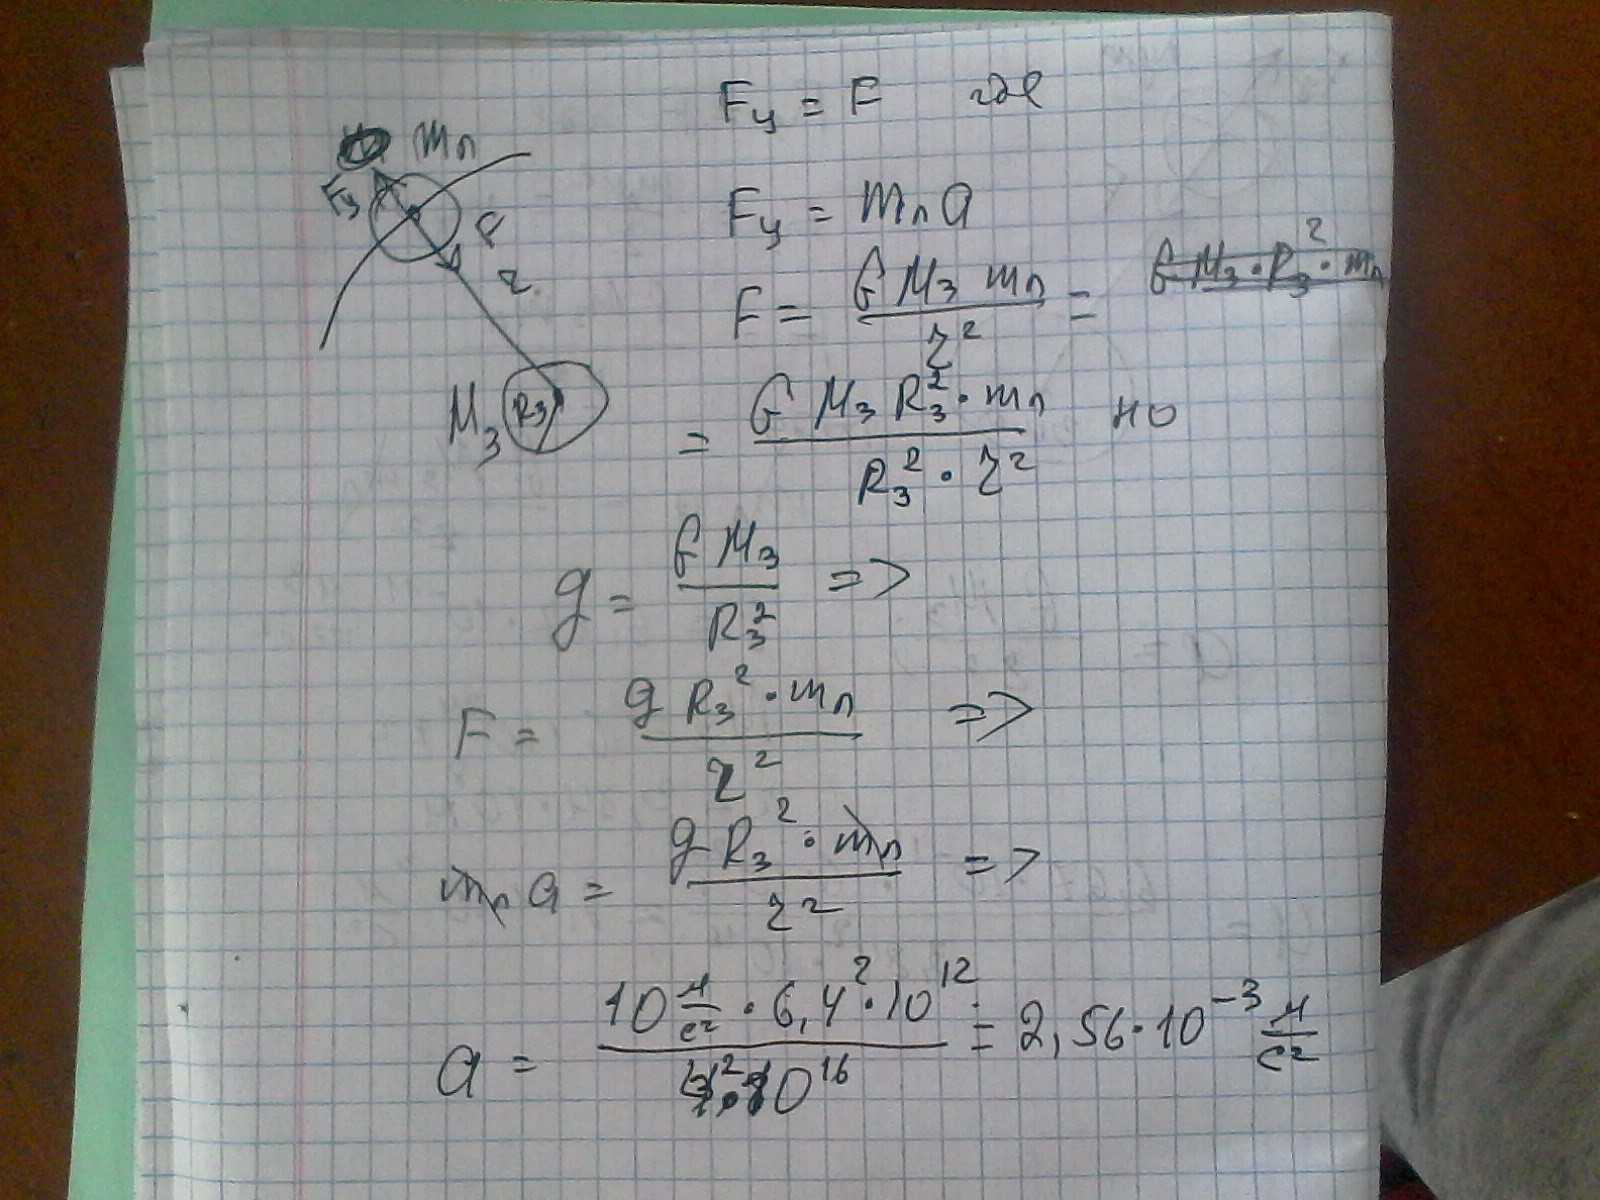 Fц = F где
mл
Fц
F
r
Mз Rз
Fц = mл a
F = G Mз mл / r² = G Mз · Rз² · mл
= G Mз Rз² · mл / Rз² · r² но
g = G Mз / Rз² =>
F = g Rз² · mл / r² =>
mл a = g Rз² · mл / r² =>
a = 10 м/с² · 6,4² · 10¹² / 4² · 10¹⁶ = 2,56 · 10⁻³ м/с²